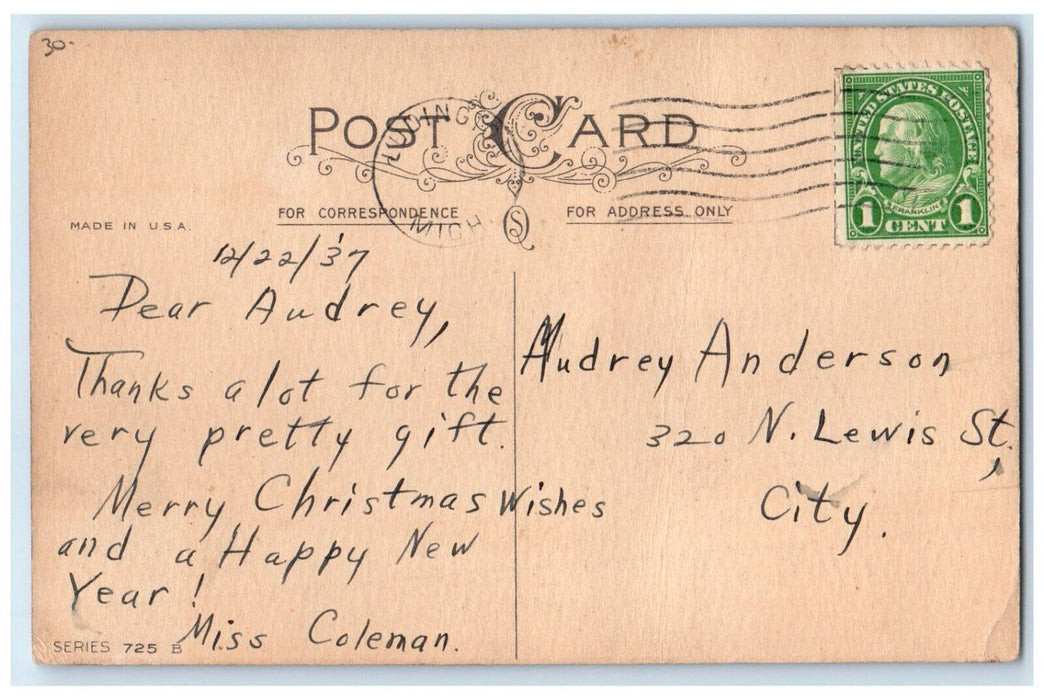 30-
POST CARD
MICH
FOR CORRESPONDENCE
FOR ADDRESS ONLY
MADE IN U.S.A.
S
UNITED STATES POSTAGE
FRANKLIN
1 CENT 1
12/22/'37
Dear Audrey,
Thanks a lot for the
very pretty gift.
Merry Christmas Wishes
and a Happy New
Year!
Miss Coleman.
SERIES 725 B
Audrey Anderson
320 N. Lewis St.,
City.